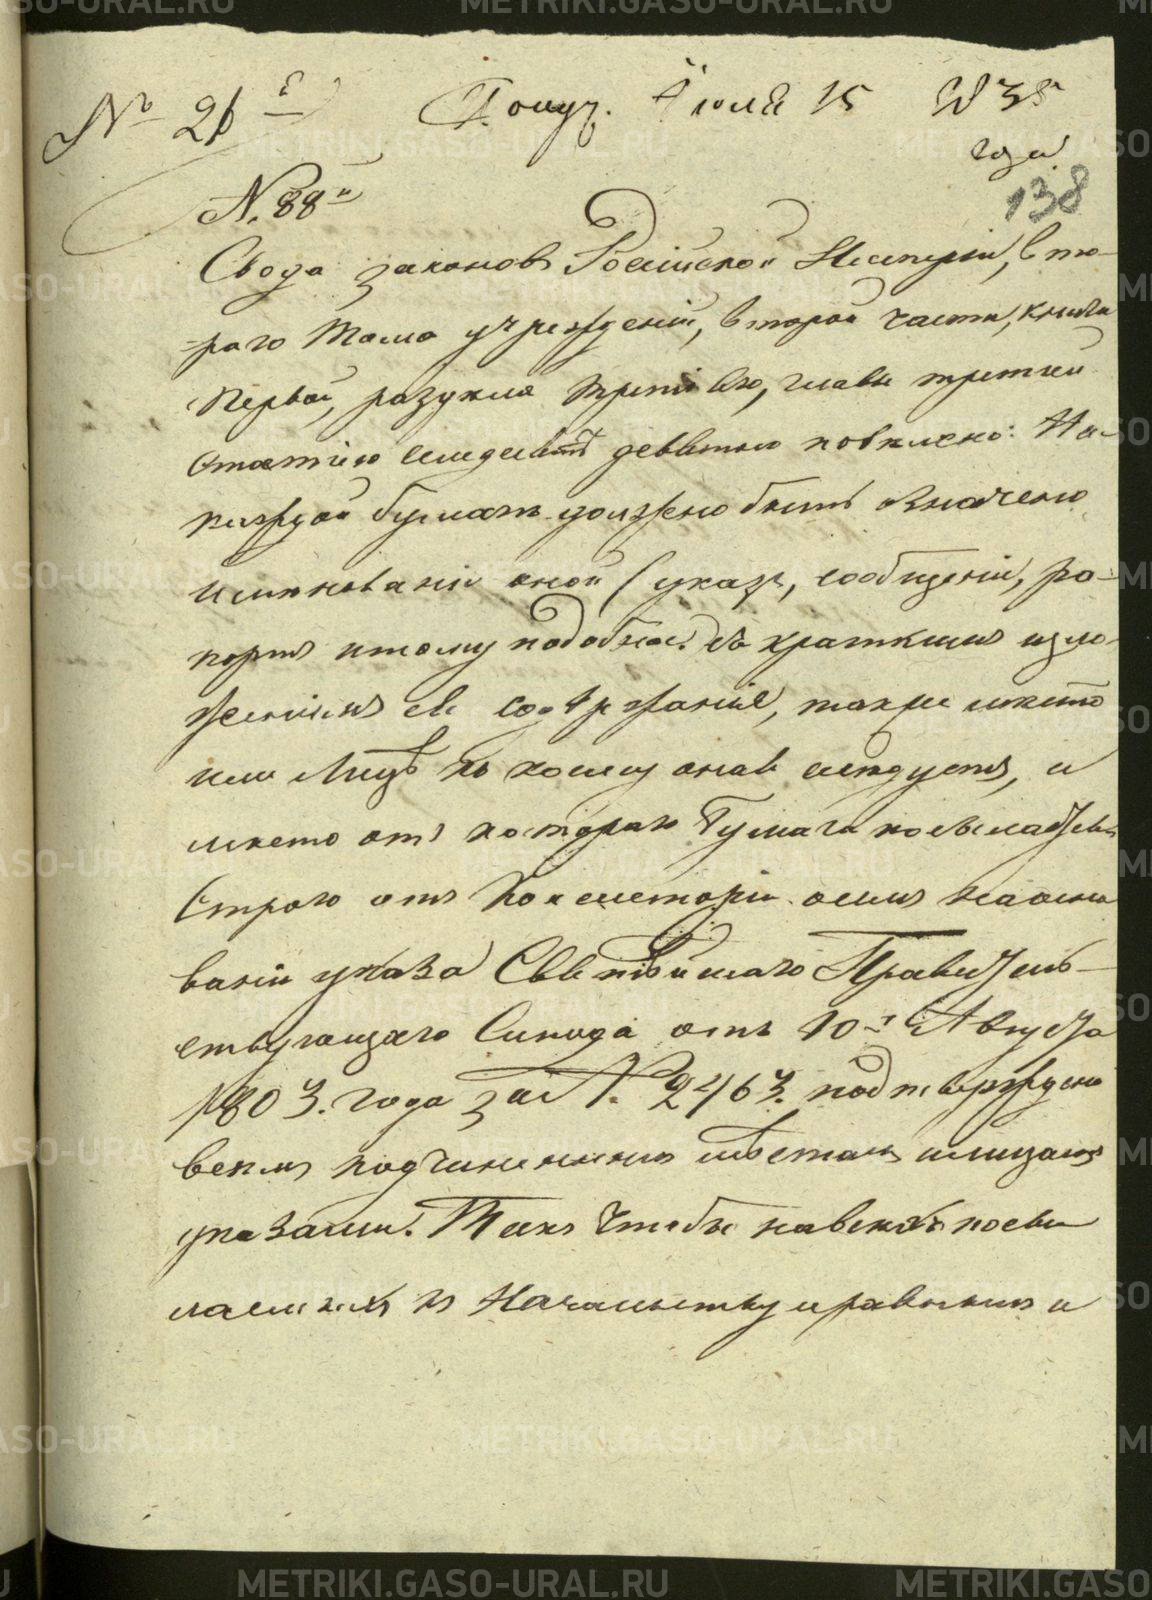 № 21й Получ. Июля 15 1835
года
138
N. 88й
Свода законовъ Россійской Имперіи, вто-
раго тома учрежденій, второй части, книги
первой, раздѣла третьяго, главы третьей
статьею семьдесятъ девятою повелено: На
каждой бумагѣ должно быть означено
именованіе оной (указъ, сообщеніе, ра-
портъ и тому подобное) съ краткимъ изло-
женіемъ ея содержанія, также мѣсто
или лице къ коему оная слѣдуетъ, и
мѣсто отъ котораго бумага посылается
Строго отъ Консисторіи симъ на осно
ваніи указа Святѣйшаго Правитель-
ствующаго Синода отъ 10го Августа
1803. года за N. 2463. подтверждено
всѣмъ подчиненнымъ мѣстамъ и лицамъ
указами. Такъ чтобы на всѣхъ посы
лаемыхъ къ Начальству и равнымъ и
METRIKI.GASO-URAL.RU